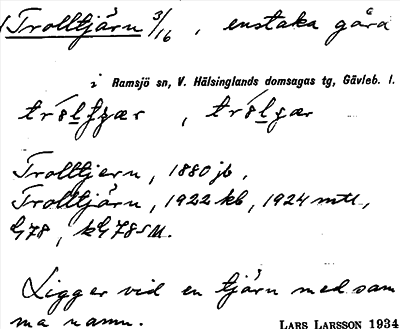 Trolltjärn 3/16, enstaka gård
i Ramsjö sn, V. Hälsinglands domsagas tg, Gävleb. l.
Trolltjern, 1880 jb,
Trolltjärn, 1922 kb, 1924 mtl,
G78, kG78SM.
Ligger vid en tjärn med sam
ma namn.
LARS LARSSON 1934